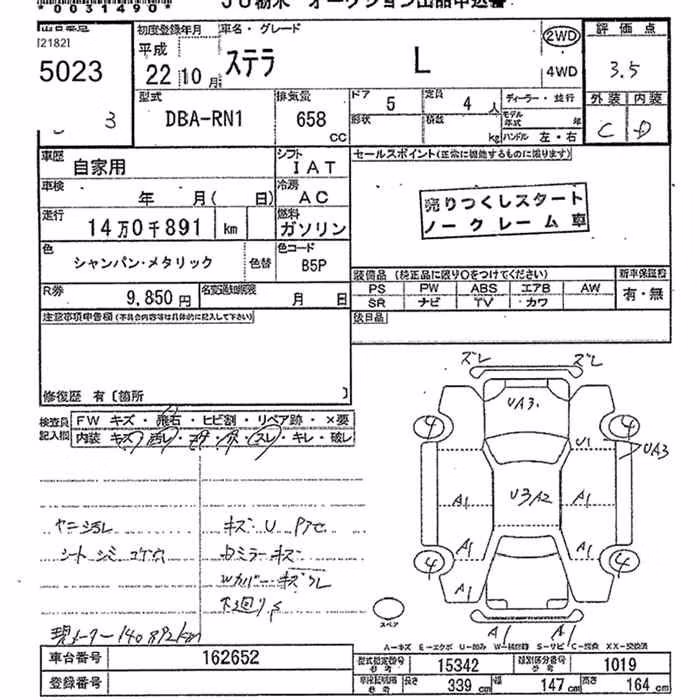 *00314901*
JU栃木 オークション出品申込書
[2182]
5023
3
初度登録年月
平成
22年10月
車名・グレード
ステラ L
2WD
4WD
評価点
3.5
外装 内装
C D
型式
DBA-RN1
排気量
658
CC
ドア
5
定員
4人
形状
積数
kg
ディーラー・並行
モデル年式 年
ハンドル 左・右
車歴
自家用
シフト
IAT
車検
年 月( 日)
冷房
AC
走行
14万0千891 km
燃料
ガソリン
色
シャンパン・メタリック
色替
色コード
B5P
R券
9,850円
名変通知期限
月 日
セールスポイント(正常に機能するものに限ります)
売りつくしスタート
ノークレーム車
装備品 (純正品に限り○をつけてください)
新車保証書
PS PW ABS エアB AW
SR ナビ TV カワ
有・無
後日品
注意事項申告欄(不具合内容等は具体的に記入して下さい)
修復歴 有〔箇所 〕
検査員
記入欄
FW キズ・飛石・ヒビ割・リペア跡・×要
内装 キズ・汚レ・コゲ・穴・スレ・キレ・破レ
ヤニ汚レ
シート シミ コゲ穴
キズ U Pアセ
Dミラーキズ
Wカバーキズワレ
下廻りS
現メーター140892km
ズレ ズレ
UA3
4 4
U1
UA3
A1 U3A2 A1
A1 A1
4 4
A1
A1 A1
スペア
A-キズ E-エクボ U-凹み W-補修跡 S-サビ C-腐食 XX-交換済
車台番号
162652
登録番号
型式指定番号
参考
15342
類別区分番号
参考
1019
車検証記載
参考
長さ
339 cm
幅
147 cm
高さ
164 cm